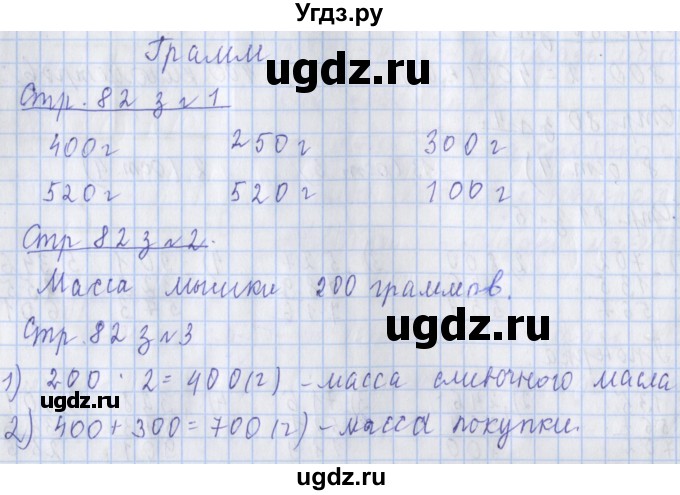 Угдз.ру
Грамм
ugdz.ru
Стр. 82 з №1
400г 250г 300г
520г 520г 100г
Стр 82 з №2.
Масса мышки 200 граммов.
ugdz.ru
Стр. 82 з №3
1) 200 · 2 = 400(г) – масса сливочного масла
ugdz.ru
2) 400 + 300 = 700 (г) – масса покупки.
ugdz.ru